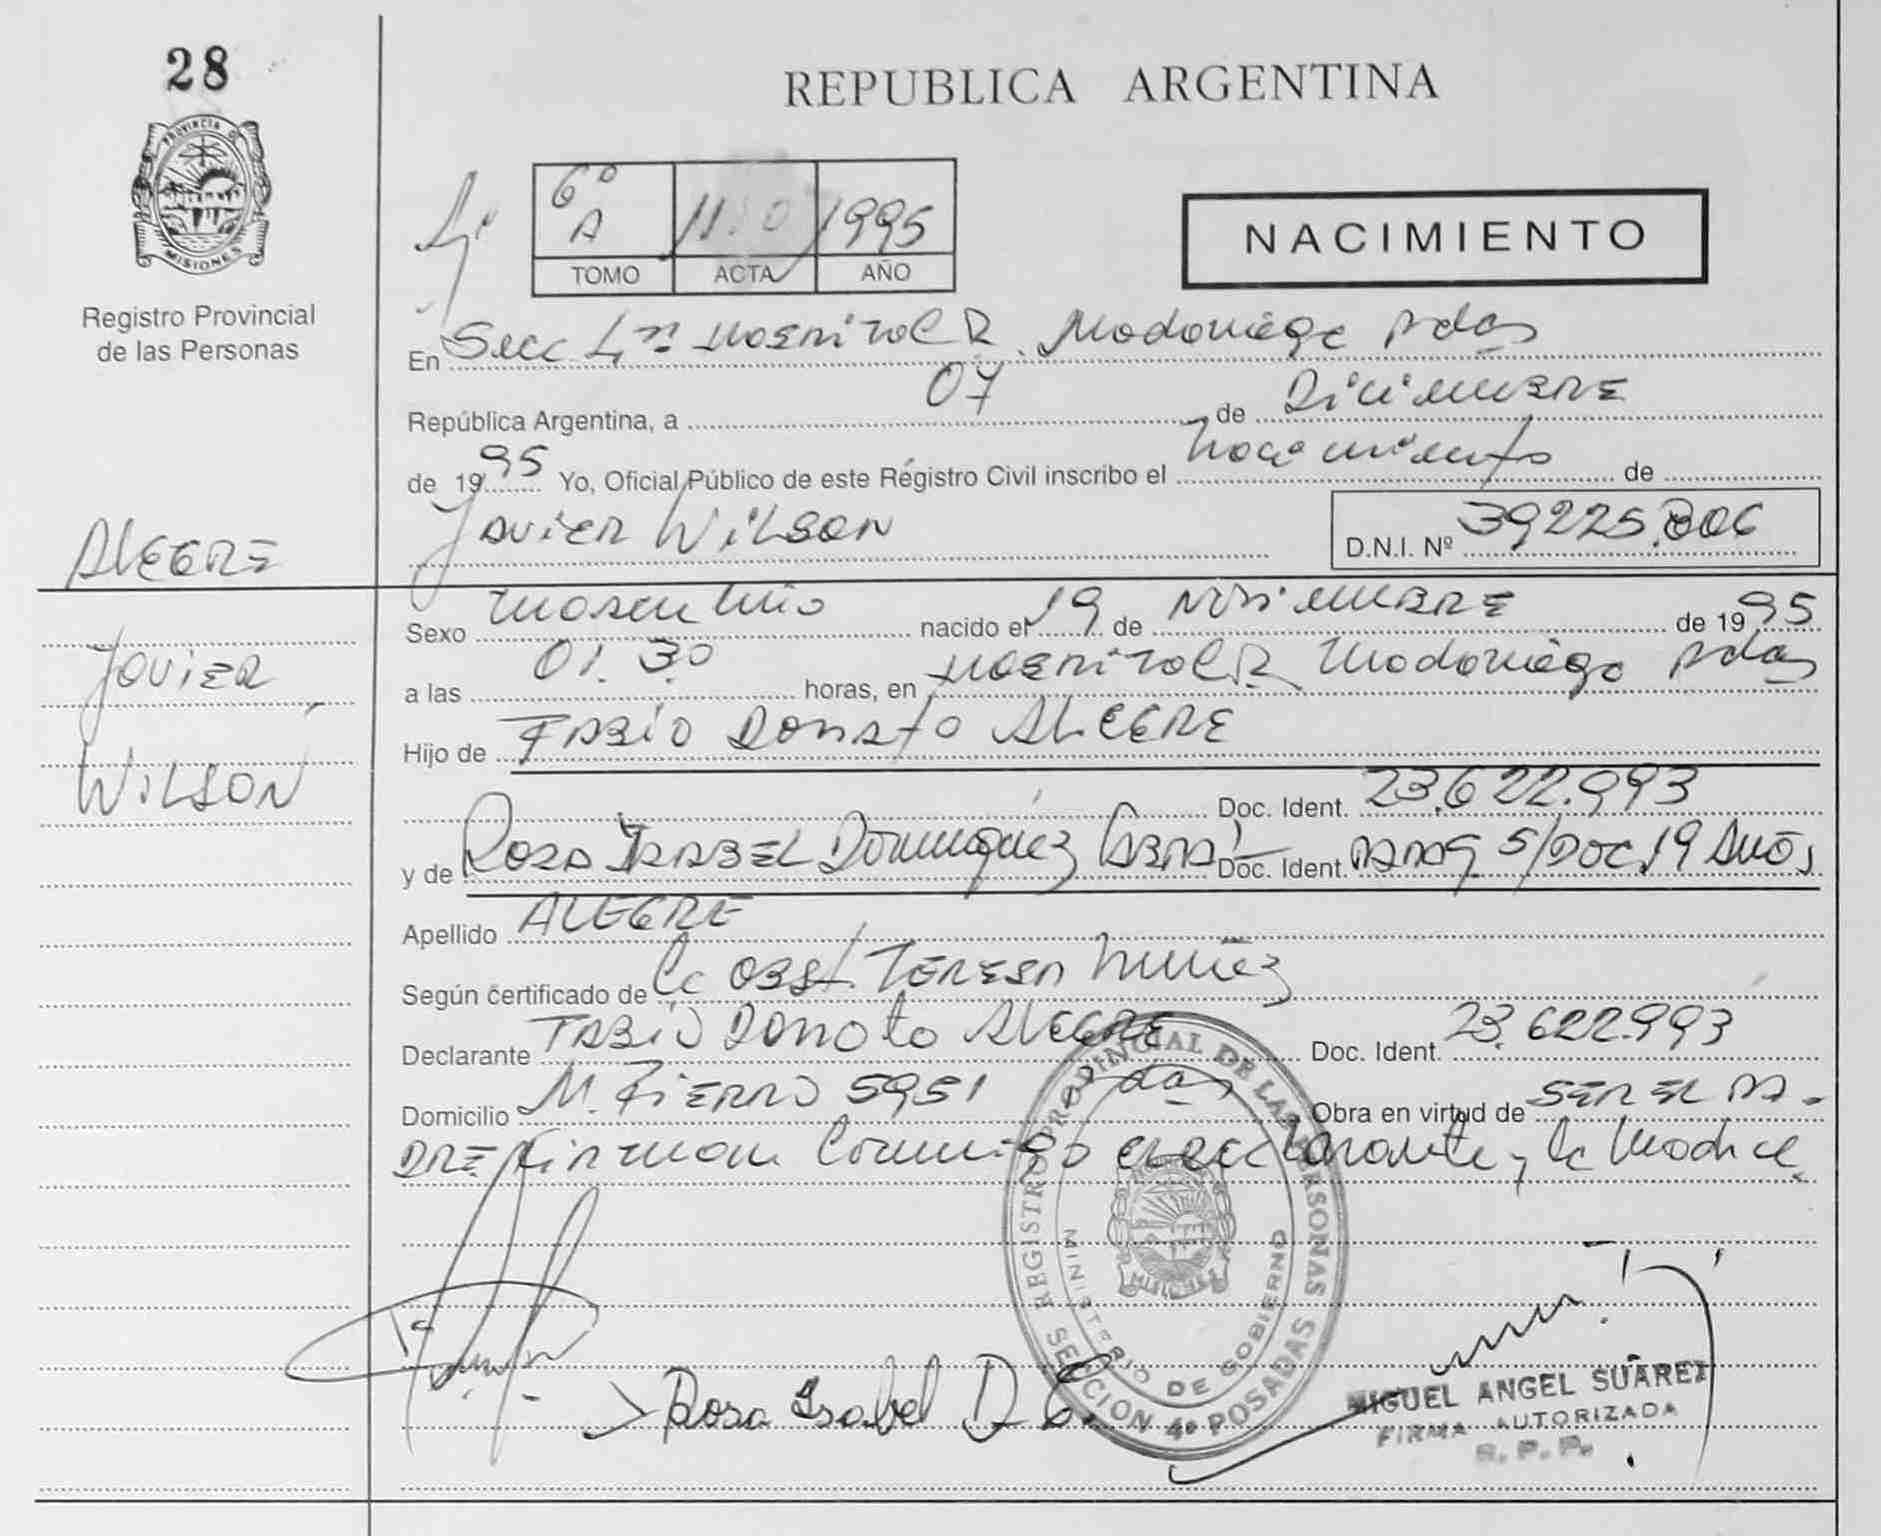 28
PROVINCIA D
MISIONES
Registro Provincial
de las Personas
REPUBLICA ARGENTINA
4ª
6º A 1995
TOMO ACTA AÑO
NACIMIENTO
En Secc 4ta Hospital R. Madariaga Pdas
República Argentina, a 07 de Diciembre
de 1995 Yo, Oficial Público de este Registro Civil inscribo el nacimiento de
Javier Wilson
D.N.I. Nº 39225.806
ALEGRE
Javier
WILSON
Sexo masculino nacido el 19 de Noviembre de 1995
a las 01.30 horas, en Hospital R Madariaga Pdas
Hijo de Fabio Donato ALEGRE
Doc. Ident. 23.622.993
y de Rosa Isabel Dominguez Doc. Ident. S/Doc. 19 Años
Apellido ALEGRE
Según certificado de la Obst. Teresa Nuñez
Declarante Fabio Donato Alegre Doc. Ident. 23.622.993
Domicilio M. Fierro 5951 Pdas Obra en virtud de ser el pa-
dre firman conmigo el declarante y la madre
REGISTRO PROVINCIAL DE LAS PERSONAS
MINISTERIO DE GOBIERNO
MISIONES
SECCION 4º POSADAS
Rosa Isabel D C.
MIGUEL ANGEL SUÁREZ
FIRMA AUTORIZADA
R. P. P.